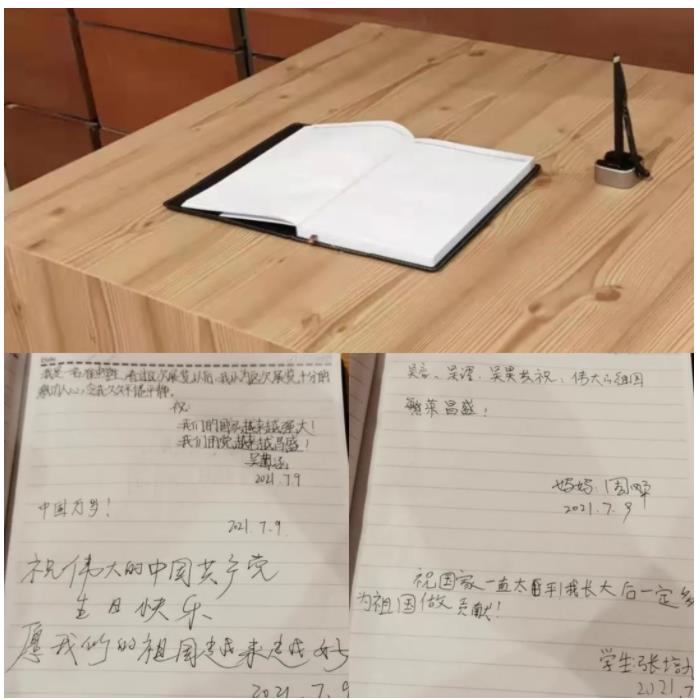 我是一名在中生，看过这次展览以后，我认为这次展览十分的
人心，令我久久不能平静。
祝：
我们的国家越来越强大！
我们的党越来越昌盛！
吴
2021.7.9
中国万岁！
2021.7.9
祝伟大的中国共产党
生日快乐
愿我们的祖国越来越好
2021.7.9
伟大的祖国
繁荣昌盛！
妈妈：周
2021.7.9
祝国家一直太平！我长大后一定
为祖国做贡献！
学生：张培
2021.7